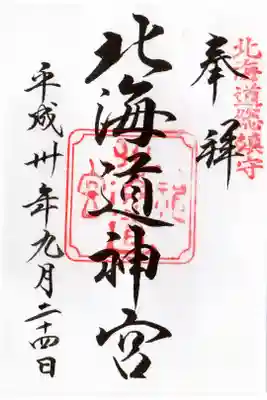 北海道總鎮守
奉拝
北海道神宮
平成卅年九月二十四日